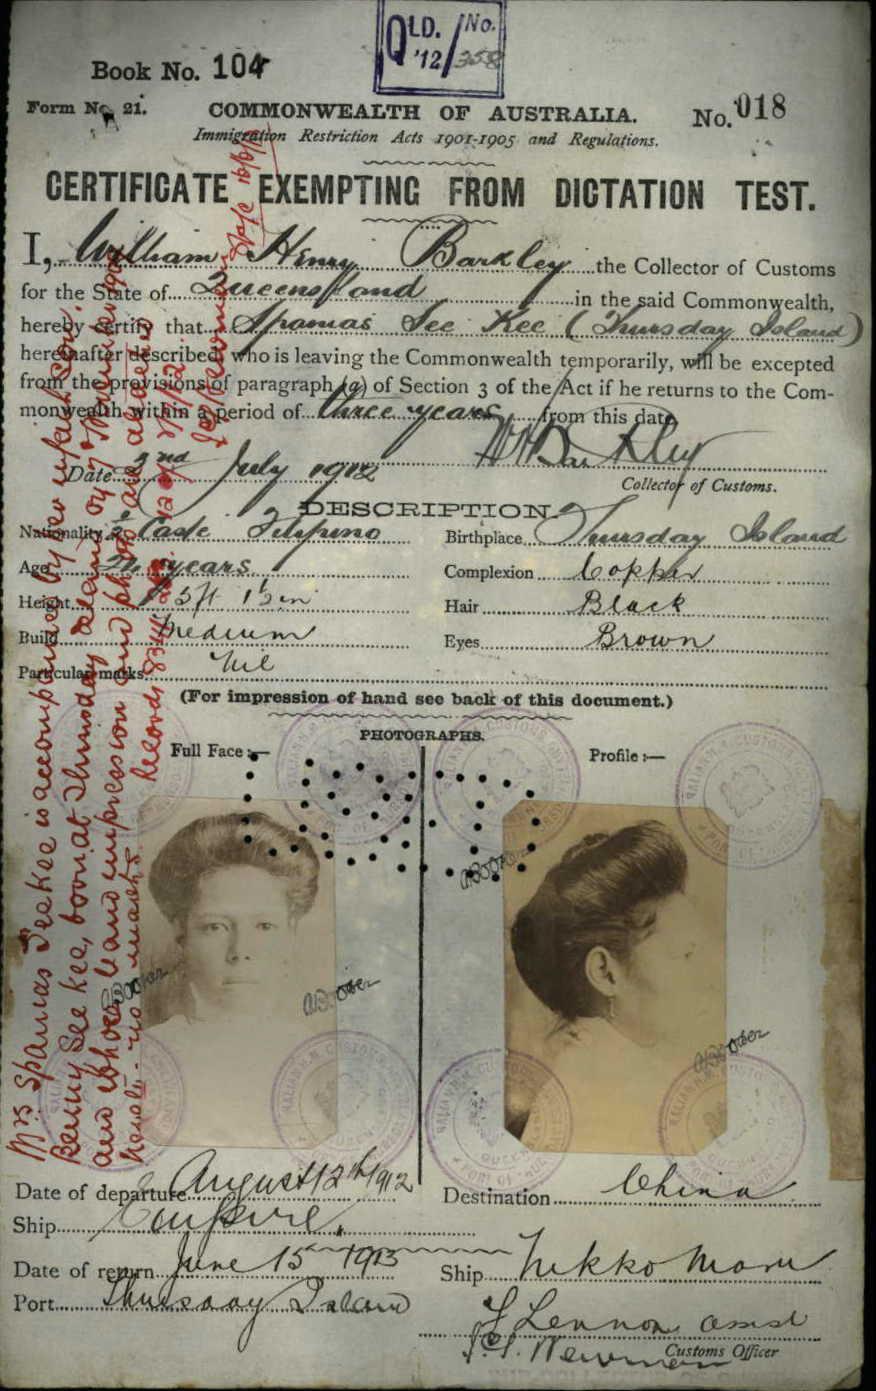 QLD. No.
'12/358
Book No. 104
Form No. 21.
COMMONWEALTH OF AUSTRALIA.
No. 018
Immigration Restriction Acts 1901-1905 and Regulations.
CERTIFICATE EXEMPTING FROM DICTATION TEST.
I, William Henry Barkley the Collector of Customs
for the State of Queensland in the said Commonwealth,
hereby certify that Spamas See Kee (Thursday Island)
hereinafter described, who is leaving the Commonwealth temporarily, will be excepted
from the provisions of paragraph (a) of Section 3 of the Act if he returns to the Com-
monwealth within a period of three years from this date
WHBarkley
Date 2nd July 1912
Collector of Customs.
DESCRIPTION.
Nationality ½ Caste Filipino
Birthplace Thursday Island
Age years
Complexion Copper
Height 5ft 1½in
Hair Black
Build Medium
Eyes Brown
Particular marks Nil
(For impression of hand see back of this document.)
PHOTOGRAPHS.
Full Face :—
Profile :—
Mrs Spamas See Kee is accompanied by her infant son,
Benny See Kee, born at Thursday Island
and whose hand impression and photo are attached
Date of departure August 12th 1912
Destination China
Ship Empire
Date of return June 15 1913
Ship Nikko Maru
Port Thursday Island
Lennon
Customs Officer